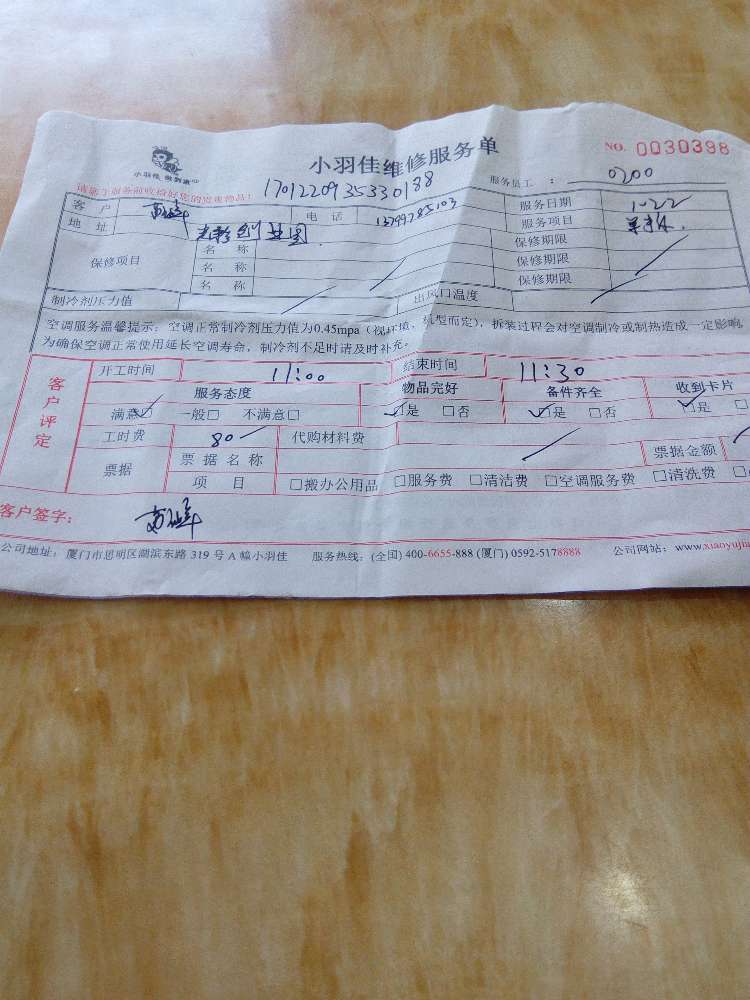 小羽佳维修服务单
NO. 0030398
小羽佳
1701220935330188
服务员工： 0200
客 户 电 话 13799785103 服务日期 1.22
地 址 服务项目
保修项目 名 称 保修期限
名 称 保修期限
名 称 保修期限
制冷剂压力值 出风口温度
空调服务温馨提示：空调正常制冷剂压力值为0.45mpa（视环境、机型而定），拆装过程会对空调制冷或制热造成一定影响，
为确保空调正常使用延长空调寿命，制冷剂不足时请及时补充。
客户评定
开工时间 11:00 结束时间 11:30
服务态度 物品完好 备件齐全 收到卡片
满意☑ 一般□ 不满意□ ☑是 □否 ☑是 □否 ☑是 □
工时费 80 代购材料费
票据 票据名称 票据金额
项 目 □搬办公用品 □服务费 □清洁费 □空调服务费 □清洗费 □
客户签字：
公司地址：厦门市思明区湖滨东路 319 号 A 幢小羽佳 服务热线：(全国) 400-6655-888 (厦门) 0592-5178888 公司网站：www.xiaoyujia